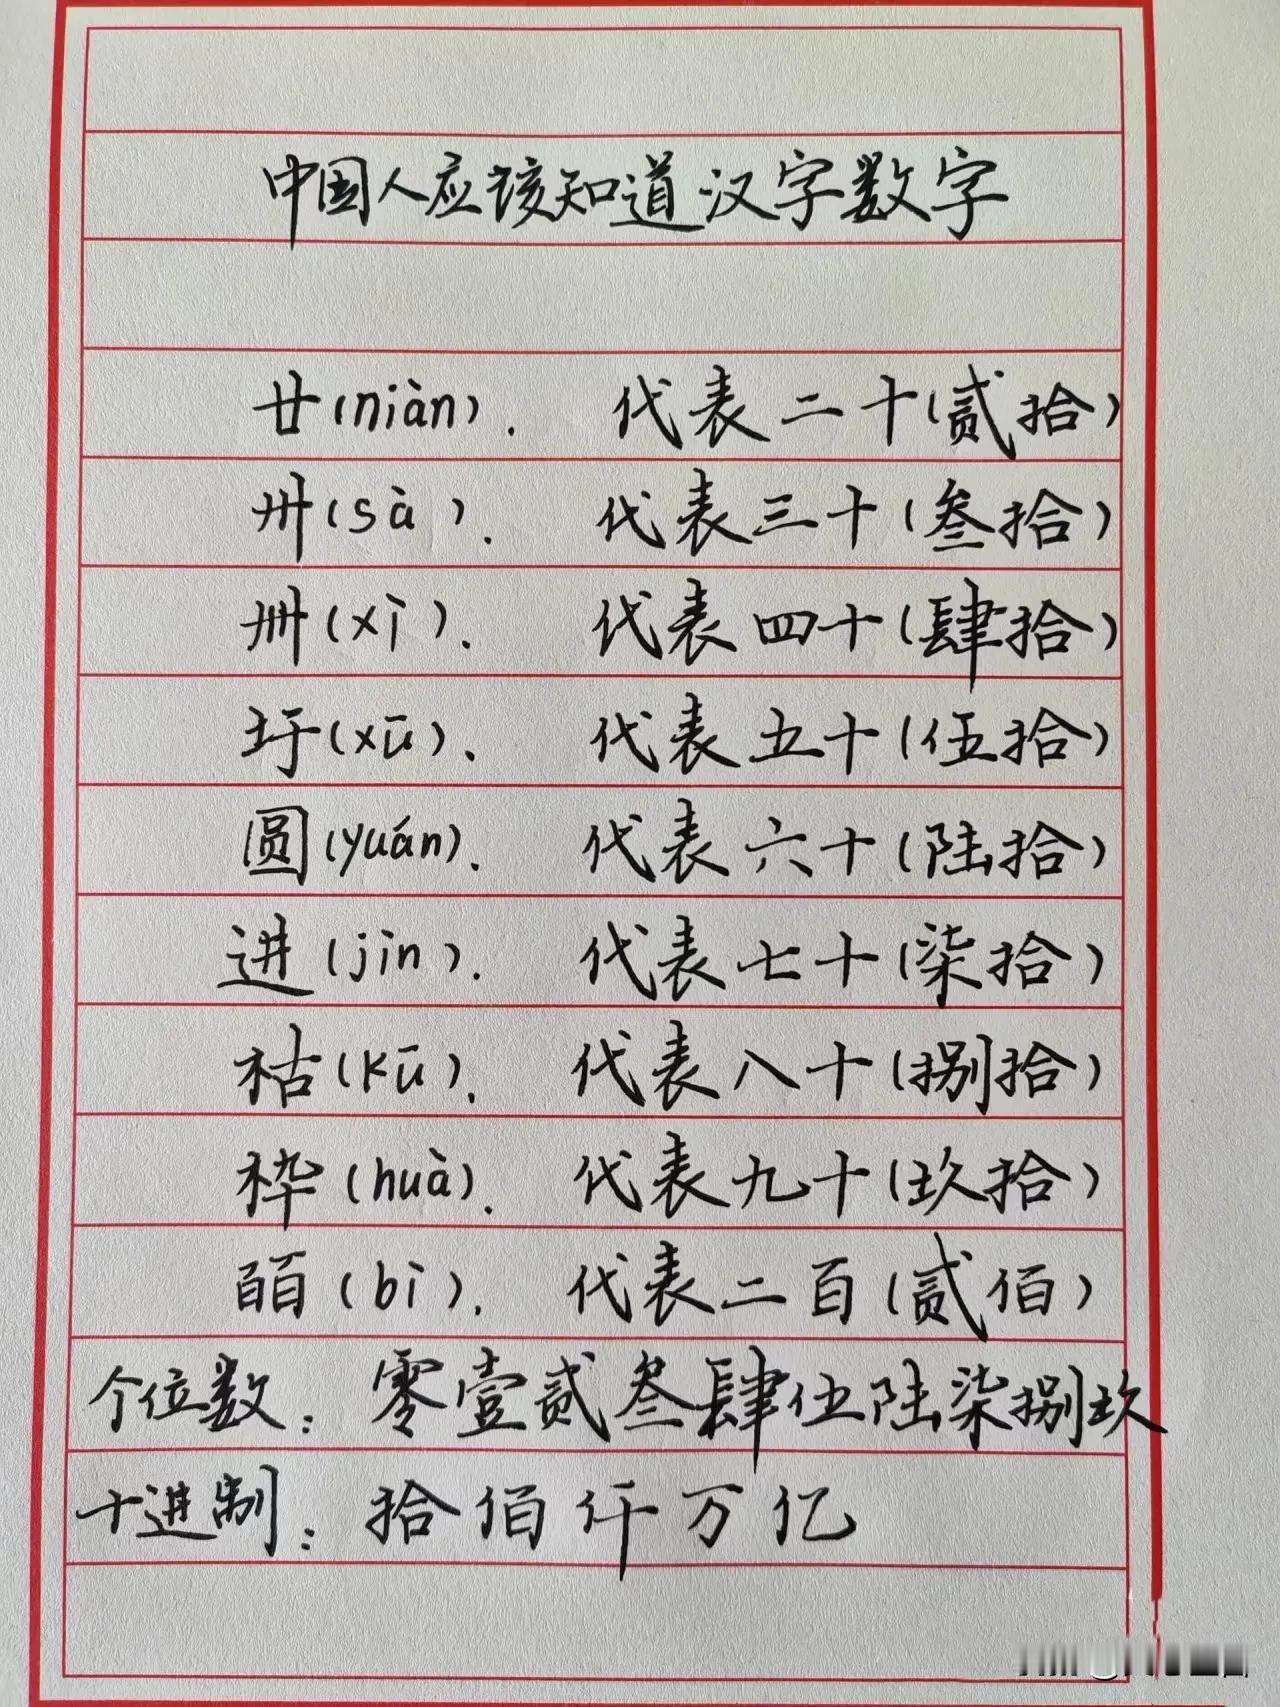 中国人应该知道汉字数字
廿(niàn). 代表二十(贰拾)
卅(sà). 代表三十(叁拾)
卌(xì). 代表四十(肆拾)
圩(xū). 代表五十(伍拾)
圆(yuán). 代表六十(陆拾)
进(jìn). 代表七十(柒拾)
枯(kū). 代表八十(捌拾)
桦(huà). 代表九十(玖拾)
皕(bì). 代表二百(贰佰)
个位数: 零壹贰叁肆伍陆柒捌玖
十进制: 拾佰仟万亿